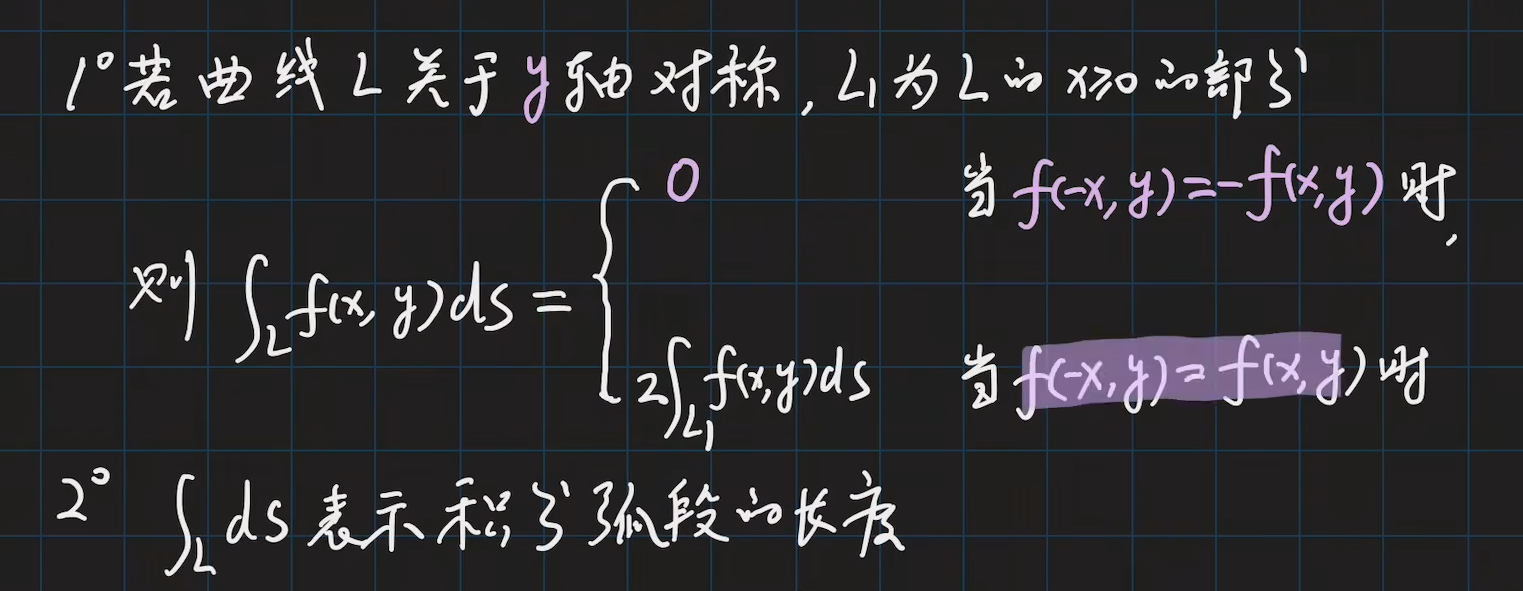 1° 若曲线 L 关于 y 轴对称, L₁为 L 的 x≥0 的部分
0 当 f(-x, y)=-f(x,y) 时,
则 ∫_L f(x, y)ds = {
2∫_{L₁} f(x,y)ds 当 f(-x, y)= f(x, y) 时
2° ∫_L ds 表示积分弧段的长度